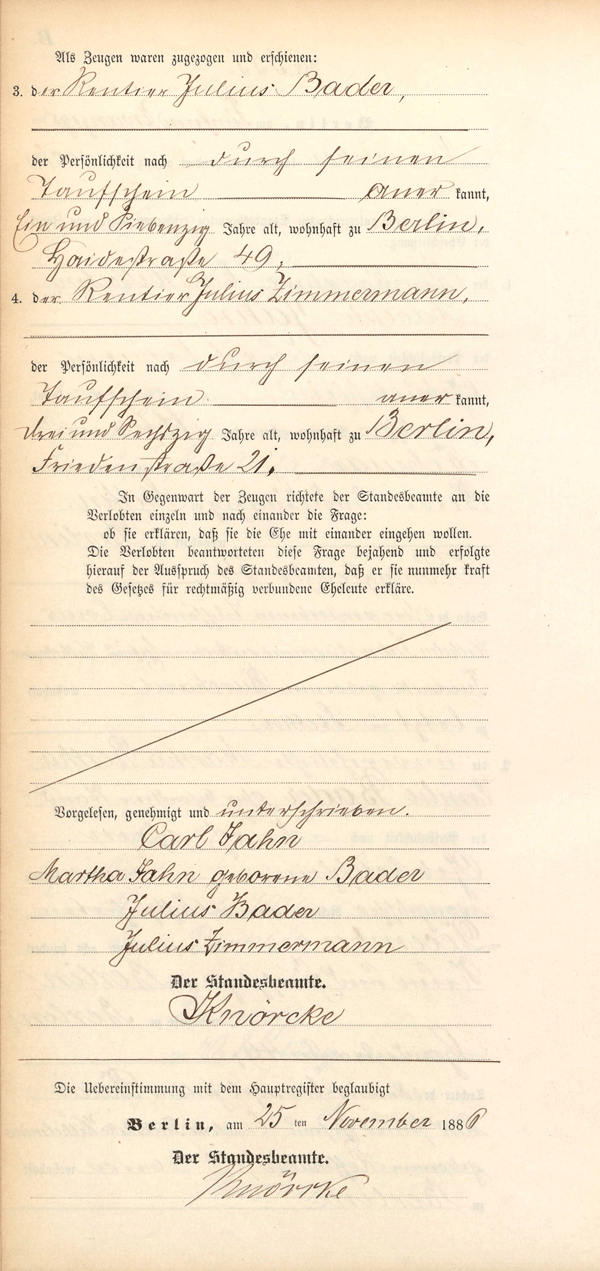 Als Zeugen waren zugezogen und erschienen:
3. der Rentier Julius Bader,
der Persönlichkeit nach durch seinen
Taufschein aner kannt,
Ein und Siebenzig Jahre alt, wohnhaft zu Berlin,
Haidestraße 49;
4. der Rentier Julius Zimmermann,
der Persönlichkeit nach durch seinen
Taufschein aner kannt,
drei und Sechszig Jahre alt, wohnhaft zu Berlin,
Friedenstraße 21.
In Gegenwart der Zeugen richtete der Standesbeamte an die
Verlobten einzeln und nach einander die Frage:
ob sie erklären, daß sie die Ehe mit einander eingehen wollen.
Die Verlobten beantworteten diese Frage bejahend und erfolgte
hierauf der Ausspruch des Standesbeamten, daß er sie nunmehr kraft
des Gesetzes für rechtmäßig verbundene Eheleute erkläre.
Vorgelesen, genehmigt und unterschrieben.
Carl Jahn
Martha Jahn geborene Bader
Julius Bader
Julius Zimmermann
Der Standesbeamte.
Knörcke
Die Uebereinstimmung mit dem Hauptregister beglaubigt
Berlin, am 25 ten November 1886
Der Standesbeamte.
Knörcke